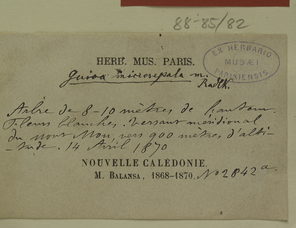 88-85/82
HERB. MUS. PARIS.
EX HERBARIO
MUSÆI
PARISIENSIS
Guioa microsepala m.
Radlk.
Arbre de 8-10 mètres de hauteur.
Fleurs blanches. Versant méridional
du mont Mou, vers 900 mètres d'alti-
tude. 14 Avril 1870
NOUVELLE CALÉDONIE.
M. BALANSA, 1868-1870. No 2842a